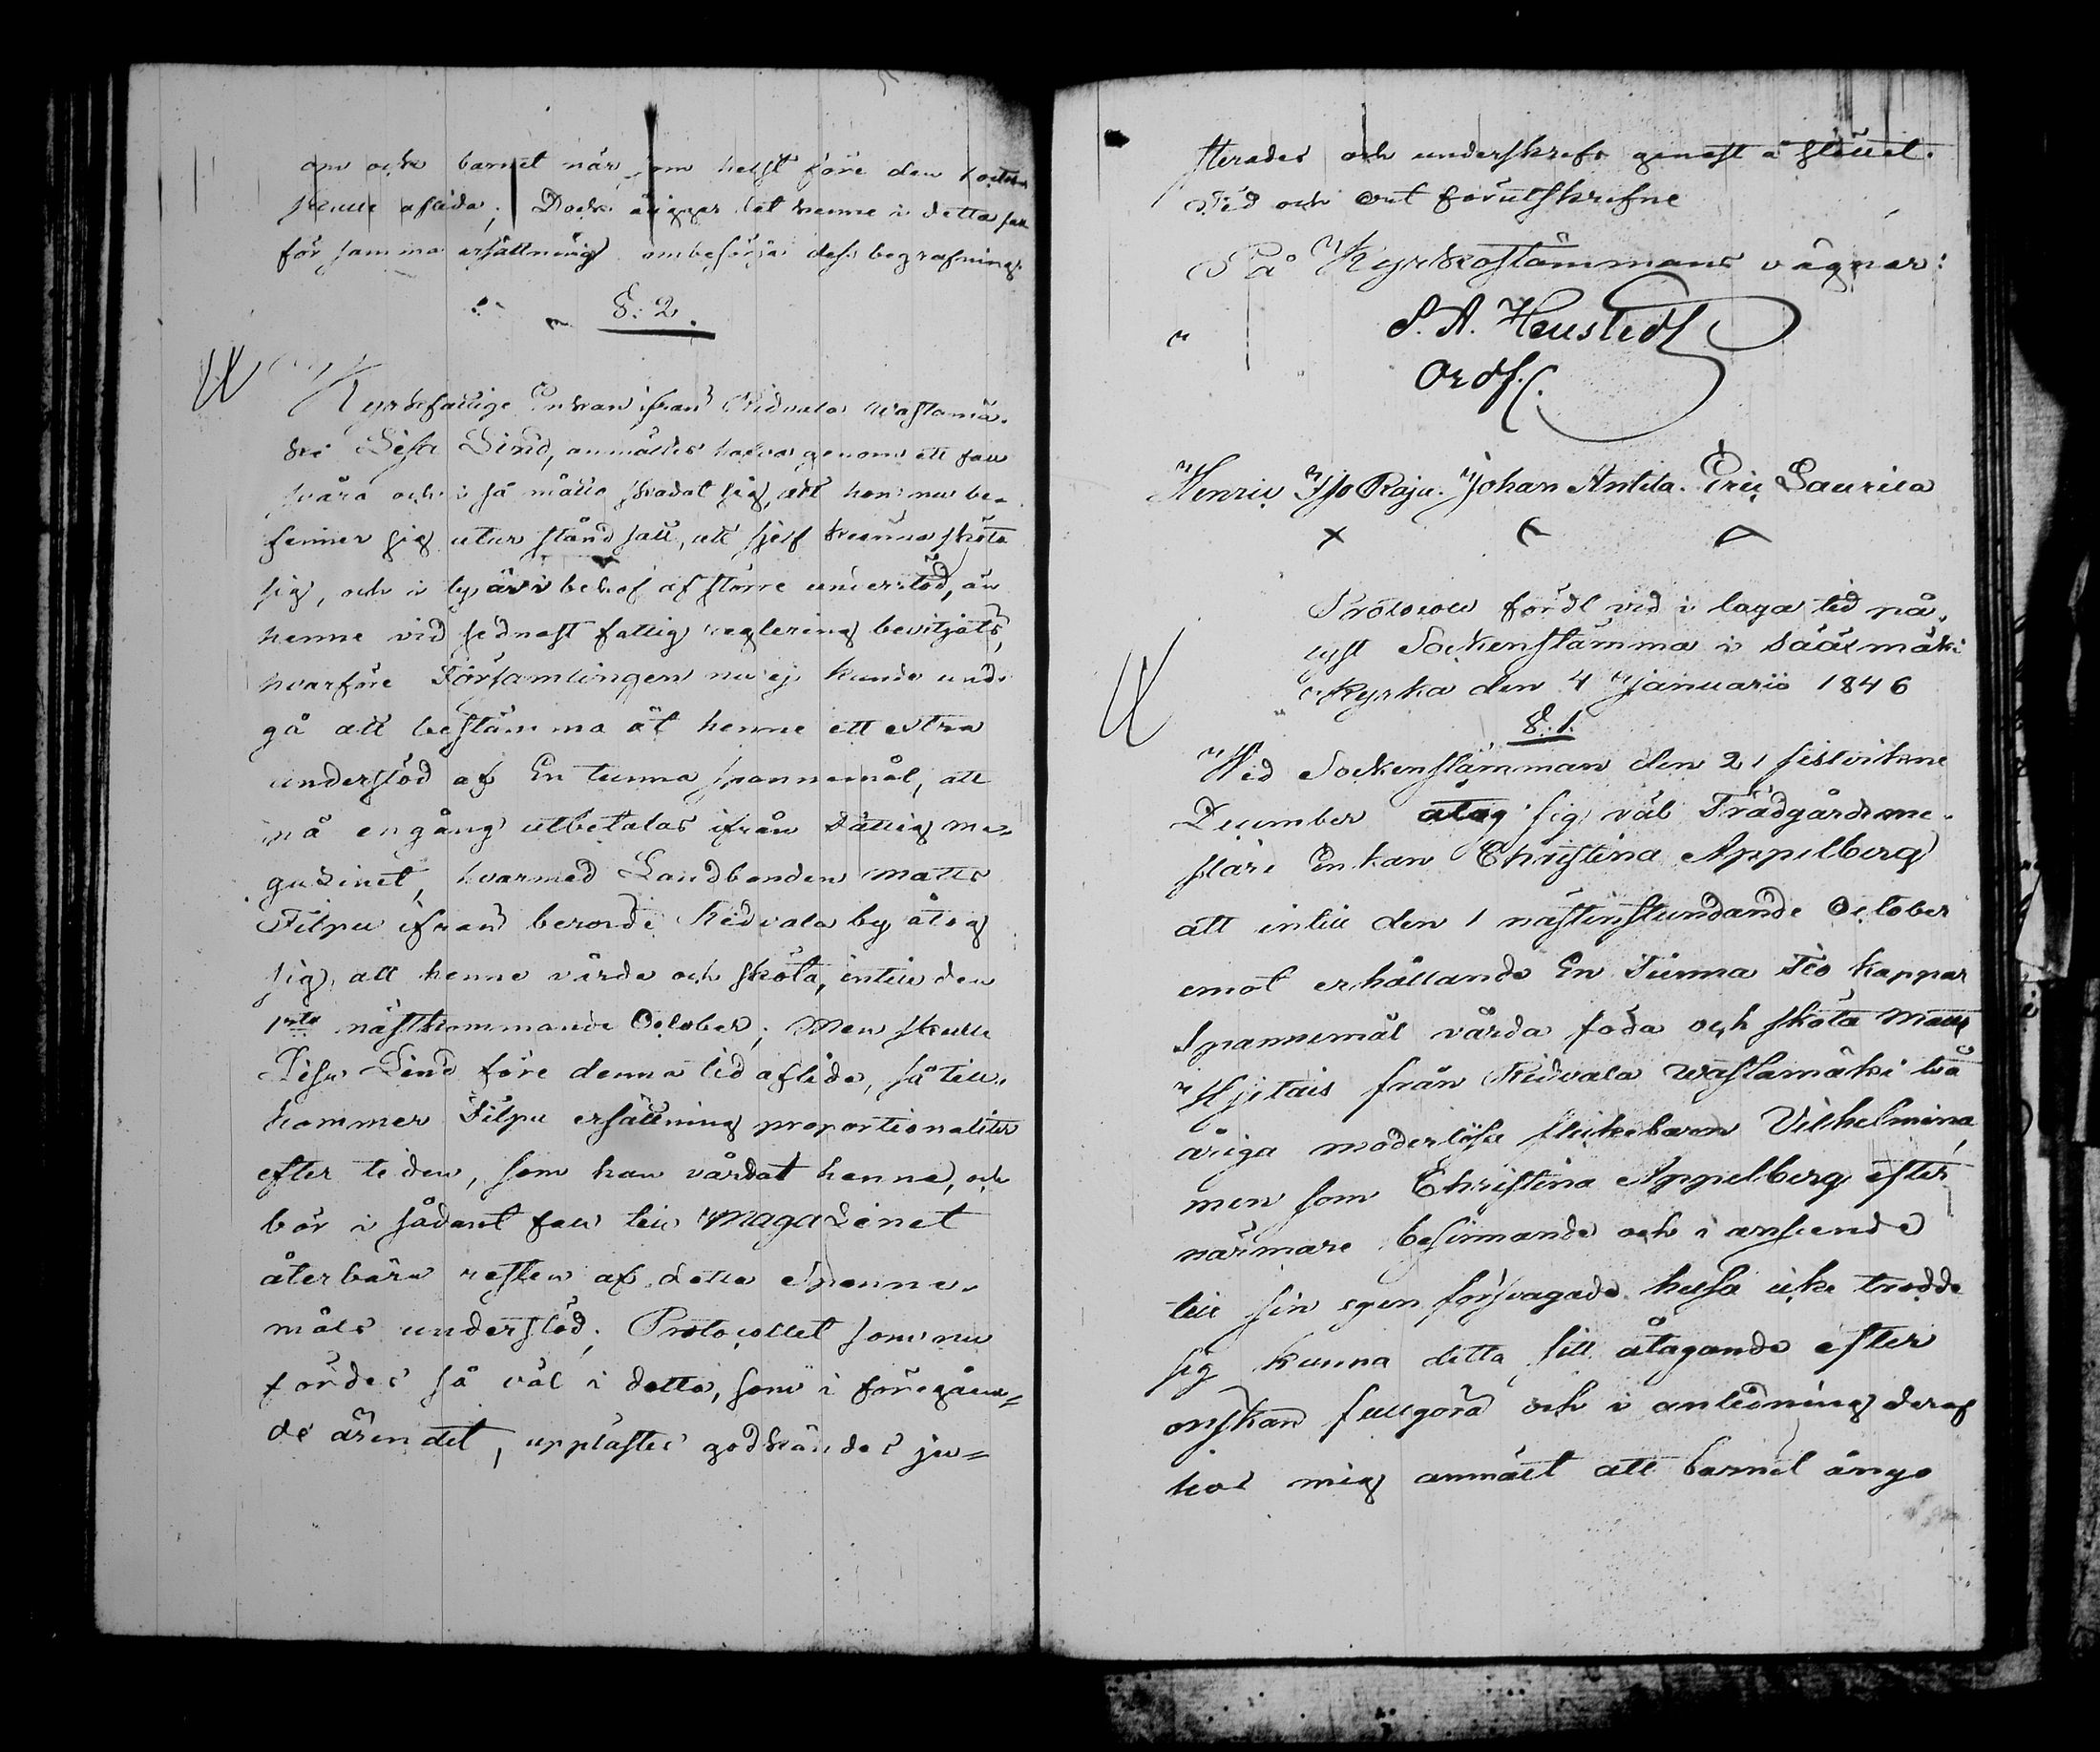 om ock barnet när som helst före den 1 octob
skulle aflida; Dock åligger det henne i detta fall
för samma ersättning ombesörja dess begrafning.
§. 2.
Kyrkfattige Enkan ifrån Ridvala Wastamä-
ki Lisa Lind, anmältes hafva genom ett fall
svåra och i så måtto skadat sig, att hon nu be-
finner sig utur stånd satt, att sjelf kunna sköta
sig, och i ty är i behof af större understöd, än
henne vid sednast fattig reglering bevitjats,
hvarföre Församlingen nu ej kunde und-
gå att bestämma åt henne ett extra
understöd af En tunna spannemål, att
på engång utbetalas ifrån Fattig ma-
gazinet, hvarmed Landbonden Matts
Filpu ifrån berörde Ridvala by åtog
sig, att henne vårda och sköta, intill den
1sta nästkommande October; Men skulle
Lisa Lind före denna tid aflida, så till-
kommer Filpu ersättning proportionaliter
efter tiden, som han vårdat henne, och
bör i sådant fall till Magazinet
återbära resten af detta Spanne-
måls understöd; Protocollet som nu
fördes så väl i detta, som i föregåen-
de ärendet, upplästes godkändes ju-
sterades och underskrefs genast å stället.
Tid och ort förutskrefne
På Kyrkostämmans vägnar:
S. A. Heustedt
Ordf.
Henric Iso Raju. Johan Antila. Eric Laurila
Protocoll fördt vid i laga tid på-
lyst Sockenstämma i Sääxmäki
Kyrka den 4 Januarii 1846
§. 1.
Wid Sockenstämman den 21 sistvikne
December åtog sig väl Trädgårdsme-
stare Enkan Christina Appelberg
att intill den 1 nästinstundande October
emot erhållande En Tunna Tio kappar
Spannemål vårda föda och sköta Matts
Hjitais från Ridvala Wastamäki två
åriga moderlösa flickebarn Vilhelmina,
men som Christina Appelberg efter
närmare besinnande och i anseende
till sin egen försvagade helsa icke trodde
sig kunna detta sitt åtagande efter
önskan fullgöra och i anledning deraf
hos mig anmält att barnet ånyo